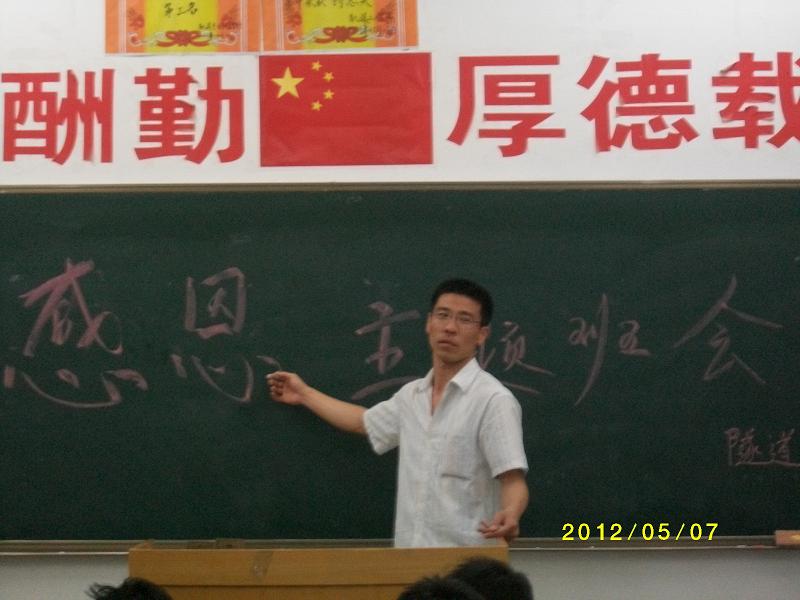 第二名
酬勤 厚德载
感恩 主题班会
隧道
2012/05/07